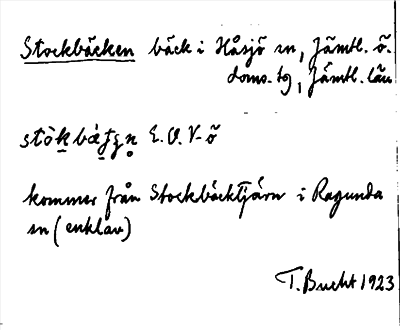 Stockbäcken bäck i Håsjö sn, Jämtl. ö.
doms.tg, Jämtl. län
E. O. V-ö
kommer från Stockbäcktjärn i Ragunda
sn (enklav)
T. Bucht 1923